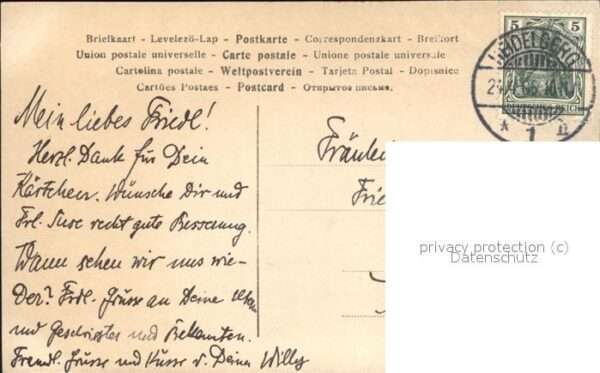 Briefkaart - Levelező-Lap - Postkarte - Correspondenzkart - Brefkort
Union postale universelle - Carte postale - Unione postale universale
Cartolina postale - Weltpostverein - Tarjeta Postal - Dopisnice
Cartões Postaes - Postcard - Открытое письмо.
5 5
HEIDELBERG
DEUTSCHES REICH
* 1 n
Mein liebes Friedl!
Herzl. Dank für Dein
Kärtchen. Wünsche Dir und
Frl. Suse recht gute Besserung.
Wann sehen wir uns wie-
der? Frdl. Grüsse an Deine Eltern
und Geschwister und Bekannten.
Freundl. Grüsse und Küsse v. Deinem Willy
Fräulein
Frie
privacy protection (c)
Datenschutz